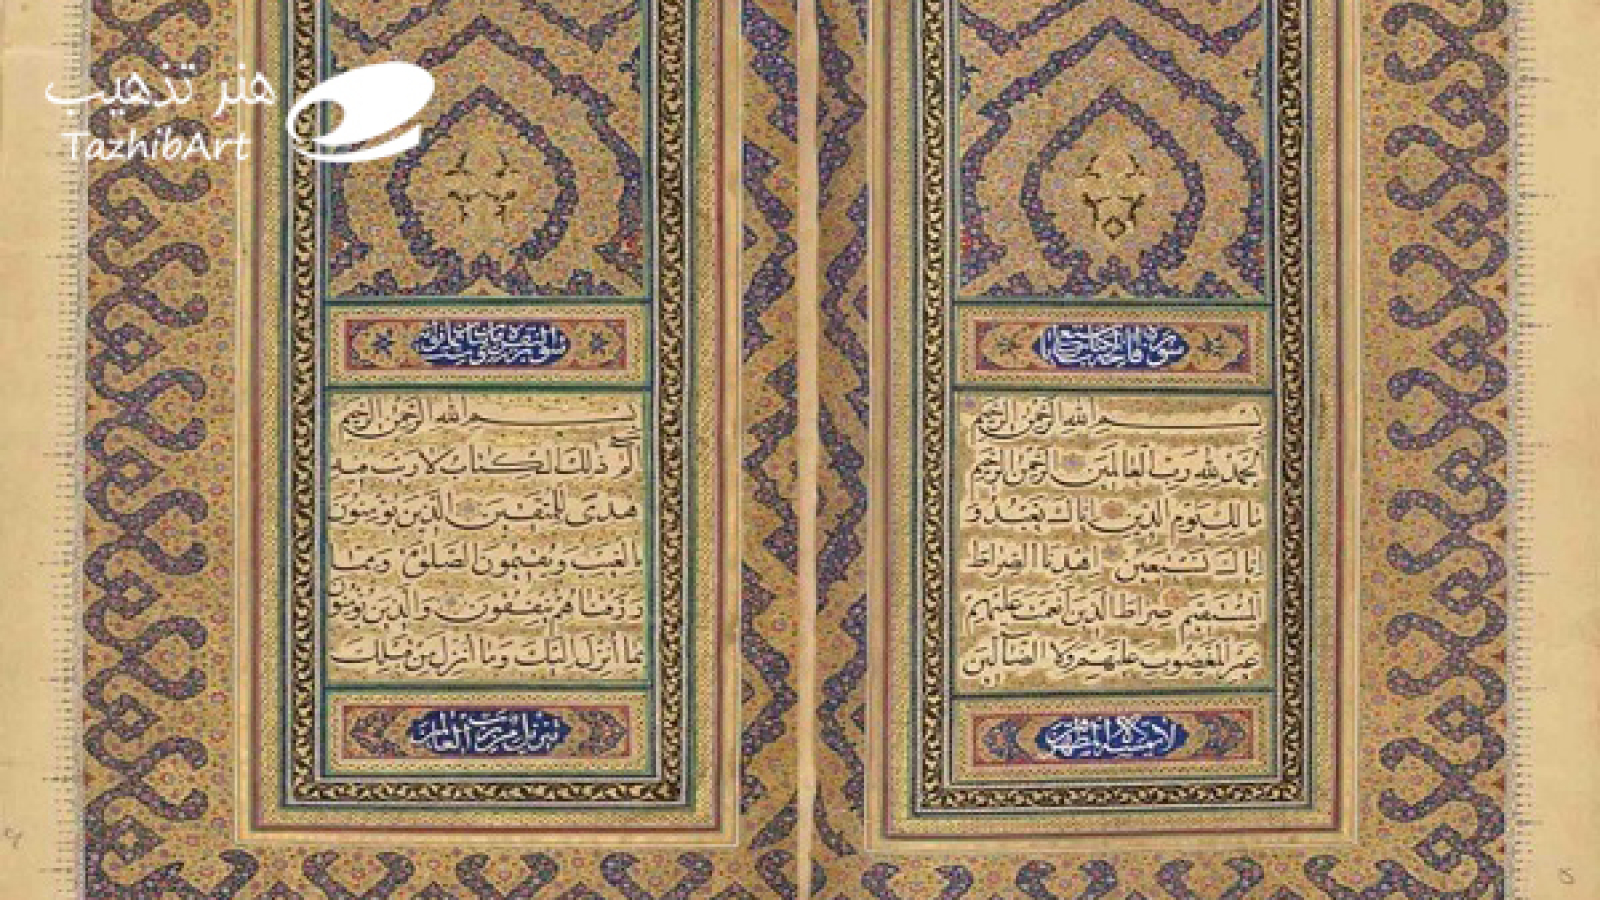 هنر تذهیب
TazhibArt
سورة فاتحة الكتاب سبع آيات
بسم الله الرحمن الرحيم
الحمد لله رب العالمين الرحمن الرحيم
مالك يوم الدين اياك نعبد و
اياك نستعين اهدنا الصراط
المستقيم صراط الذين انعمت عليهم
غير المغضوب عليهم ولا الضالين
لا يمسه الا المطهرون
سورة البقرة مائتان
بسم الله الرحمن الرحيم
الم ذلك الكتاب لا ريب فيه
هدى للمتقين الذين يؤمنون
بالغيب ويقيمون الصلوة ومما
رزقناهم ينفقون والذين يؤمنون
بما أنزل اليك وما أنزل من قبلك
تنزيل من رب العالمين